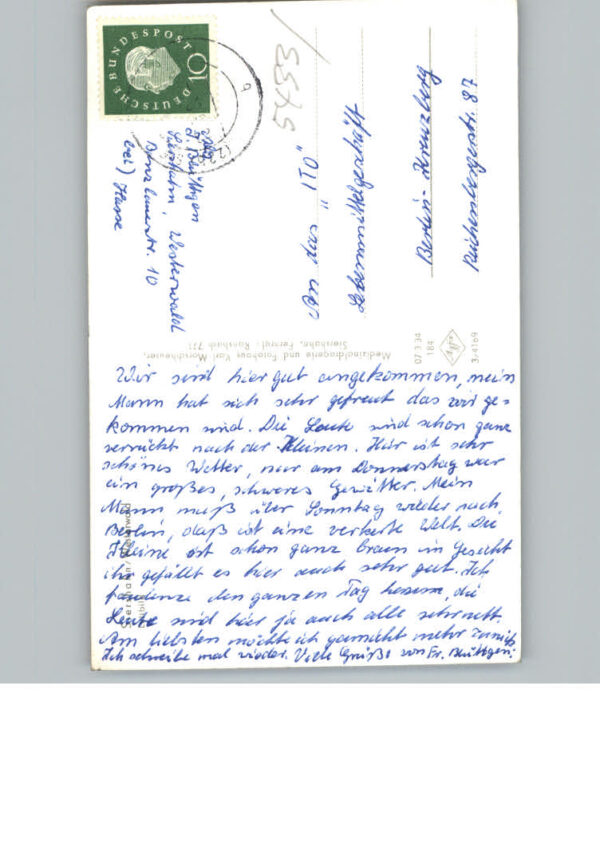 DEUTSCHE BUNDESPOST
10
5575
Siershahn, Westerwald
Bonzlauerstr. 10
bei) Hasse
An das "ITO"
Lebensmittelgeschäft
Berlin-Kreuzberg
Reichenbergestr. 87
Medizinaldrogerie und Fotohaus Karl Morschheuser,
Siershahn, Fernruf: Ransbach 771
07 3 34
184
3-4169
Wir sind hier gut angekommen, mein
Mann hat sich sehr gefreut das wir ge-
kommen sind. Die Leute sind schon ganz
verrückt nach der Kleinen. Hier ist sehr
schönes Wetter, nur am Donnerstag war
ein großes, schweres Gewitter. Mein
Mann muß über Sonntag wieder nach
Berlin, daß ist eine verkerte Welt. Die
Kleine ist schon ganz braun im Gesicht
ihr gefällt es hier auch sehr gut. Ich
faulenze den ganzen Tag herum, die
Leute sind hier ja auch alle sehr nett.
Am liebsten möchte ich garnicht mehr zurück.
Ich schreibe mal wieder. Viele Grüße von Fr.
Siershahn/Westerwald